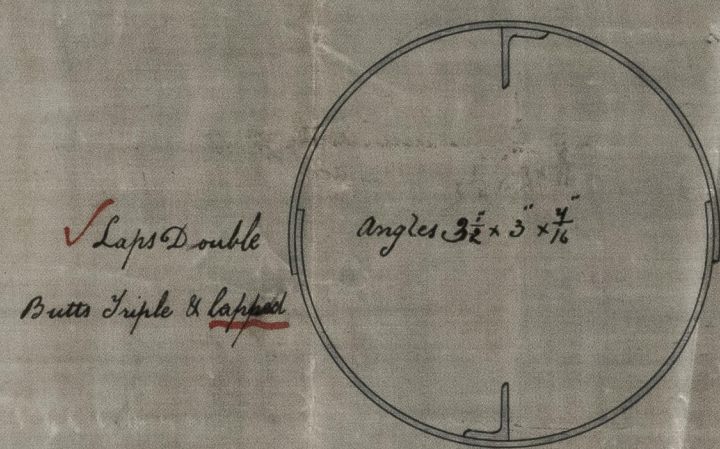 ✓ Laps Double
Butts Triple & lapped
Angles 3½" × 3" × 7/16"